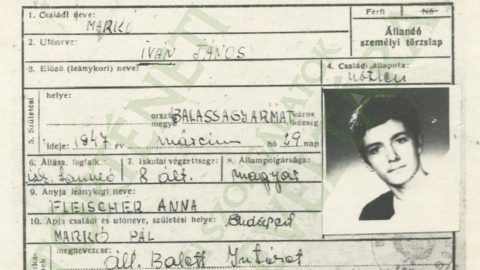 1. Családi neve:
MARKÓ
Férfi Nő
2. Utóneve:
IVÁN JÁNOS
Állandó
személyi törzslap
3. Előző (leánykori) neve:
4. Családi állapota:
nőtlen
5. Születési
helye:
ország BALASSAGYARMAT város
megye község
ideje: 1947 év március hó 29 nap
6. Állása, foglalk. 7. Iskolai végzettsége: 8. Állampolgársága:
8 ált. magyar
9. Anyja leánykori neve:
FLEISCHER ANNA
10. Apja családi és utóneve, születési helye: Budapest
MARKÓ PÁL
megnevezése:
Áll. Balett Intézet